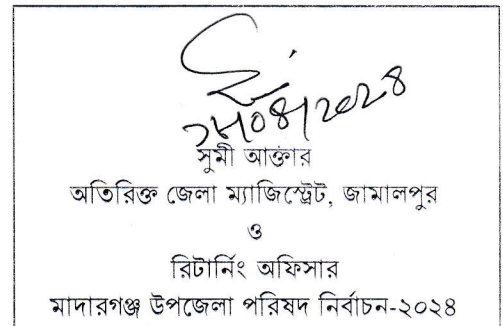 সুমী আক্তার
অতিরিক্ত জেলা ম্যাজিস্ট্রেট, জামালপুর
ও
রিটার্নিং অফিসার
মাদারগঞ্জ উপজেলা পরিষদ নির্বাচন-২০২৪